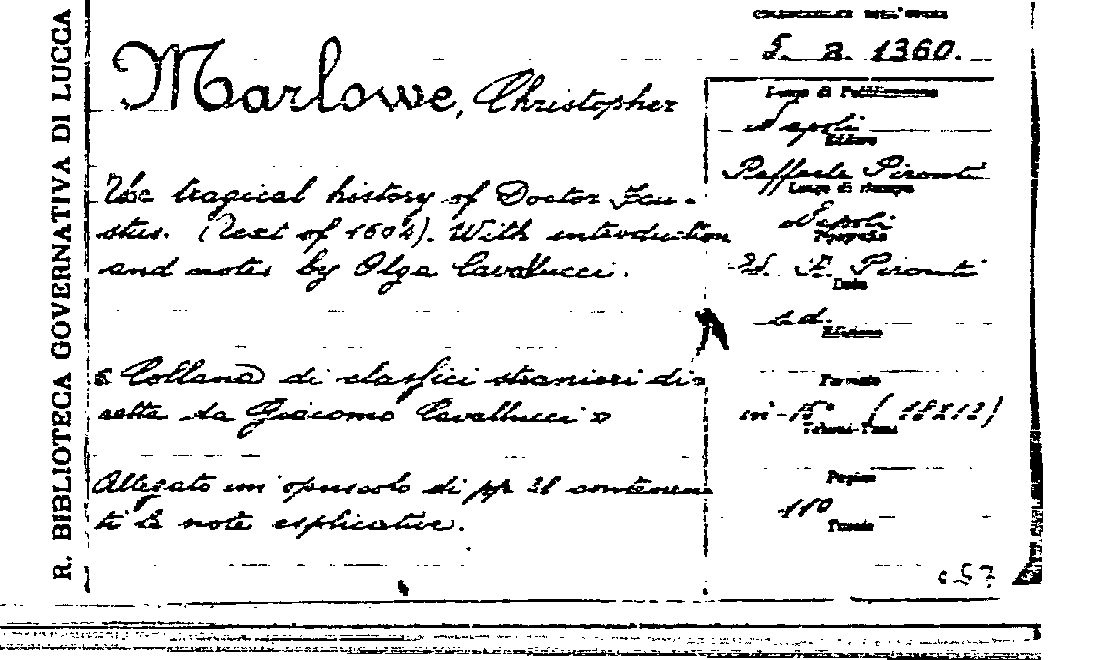 R. BIBLIOTECA GOVERNATIVA DI LUCCA
COLLOCAZIONE DELL'OPERA
5. a. 1360.
Marlowe, Christopher
The tragical history of Doctor Fau-
stus. (Text of 1604). With introduction
and notes by Olga Cavallucci.
« Collana di classici stranieri di-
retta da Giacomo Cavallucci »
Allegato un opuscolo di pp 28 contenen
ti le note esplicative.
Luogo di Pubblicazione
Napoli
Editore
Raffaele Pironti
Luogo di stampa
Napoli
Tipografia
Pironti
Data
s.d.
Edizione
Formato
in-15° (18X12)
Volumi-Tomi
Pagine
110
Tavole